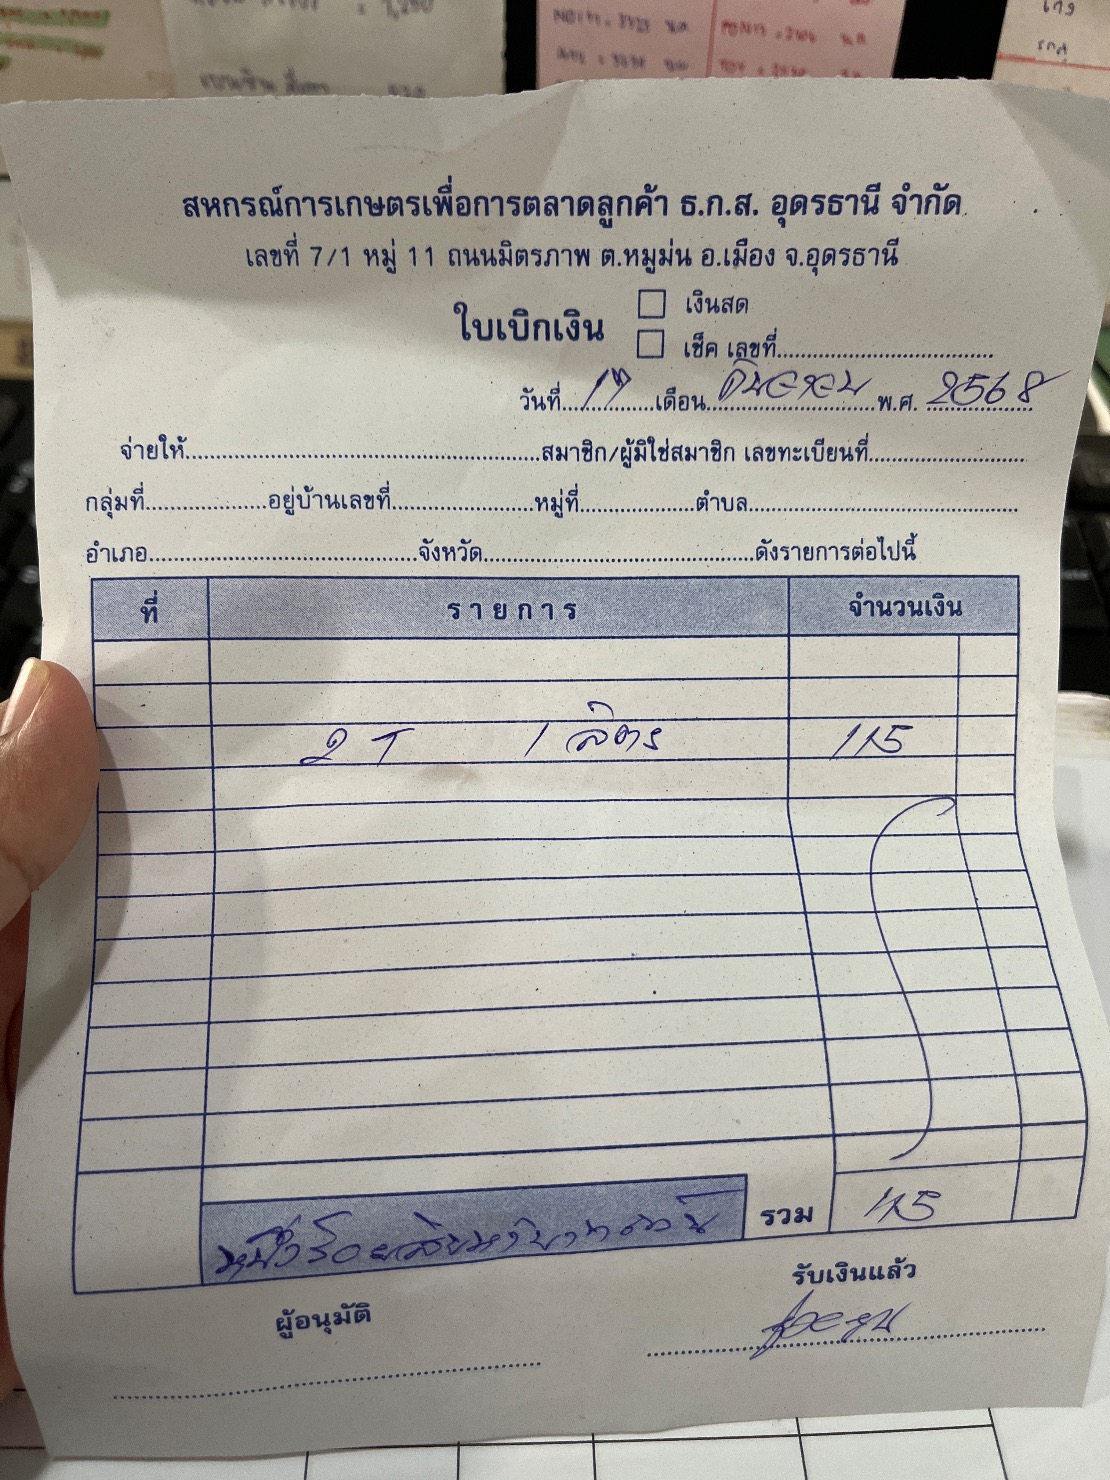 สหกรณ์การเกษตรเพื่อการตลาดลูกค้า ธ.ก.ส. อุดรธานี จำกัด
เลขที่ 7/1 หมู่ 11 ถนนมิตรภาพ ต.หมูม่น อ.เมือง จ.อุดรธานี
ใบเบิกเงิน
☐ เงินสด
☐ เช็ค เลขที่
วันที่ 17 เดือน ธันวาคม พ.ศ. 2568
จ่ายให้ สมาชิก/ผู้มิใช่สมาชิก เลขทะเบียนที่
กลุ่มที่ อยู่บ้านเลขที่ หมู่ที่ ตำบล
อำเภอ จังหวัด ดังรายการต่อไปนี้
ที่ รายการ จำนวนเงิน
2T 1 ลิตร 115
หนึ่งร้อยสิบห้าบาทถ้วน รวม 115
ผู้อนุมัติ รับเงินแล้ว